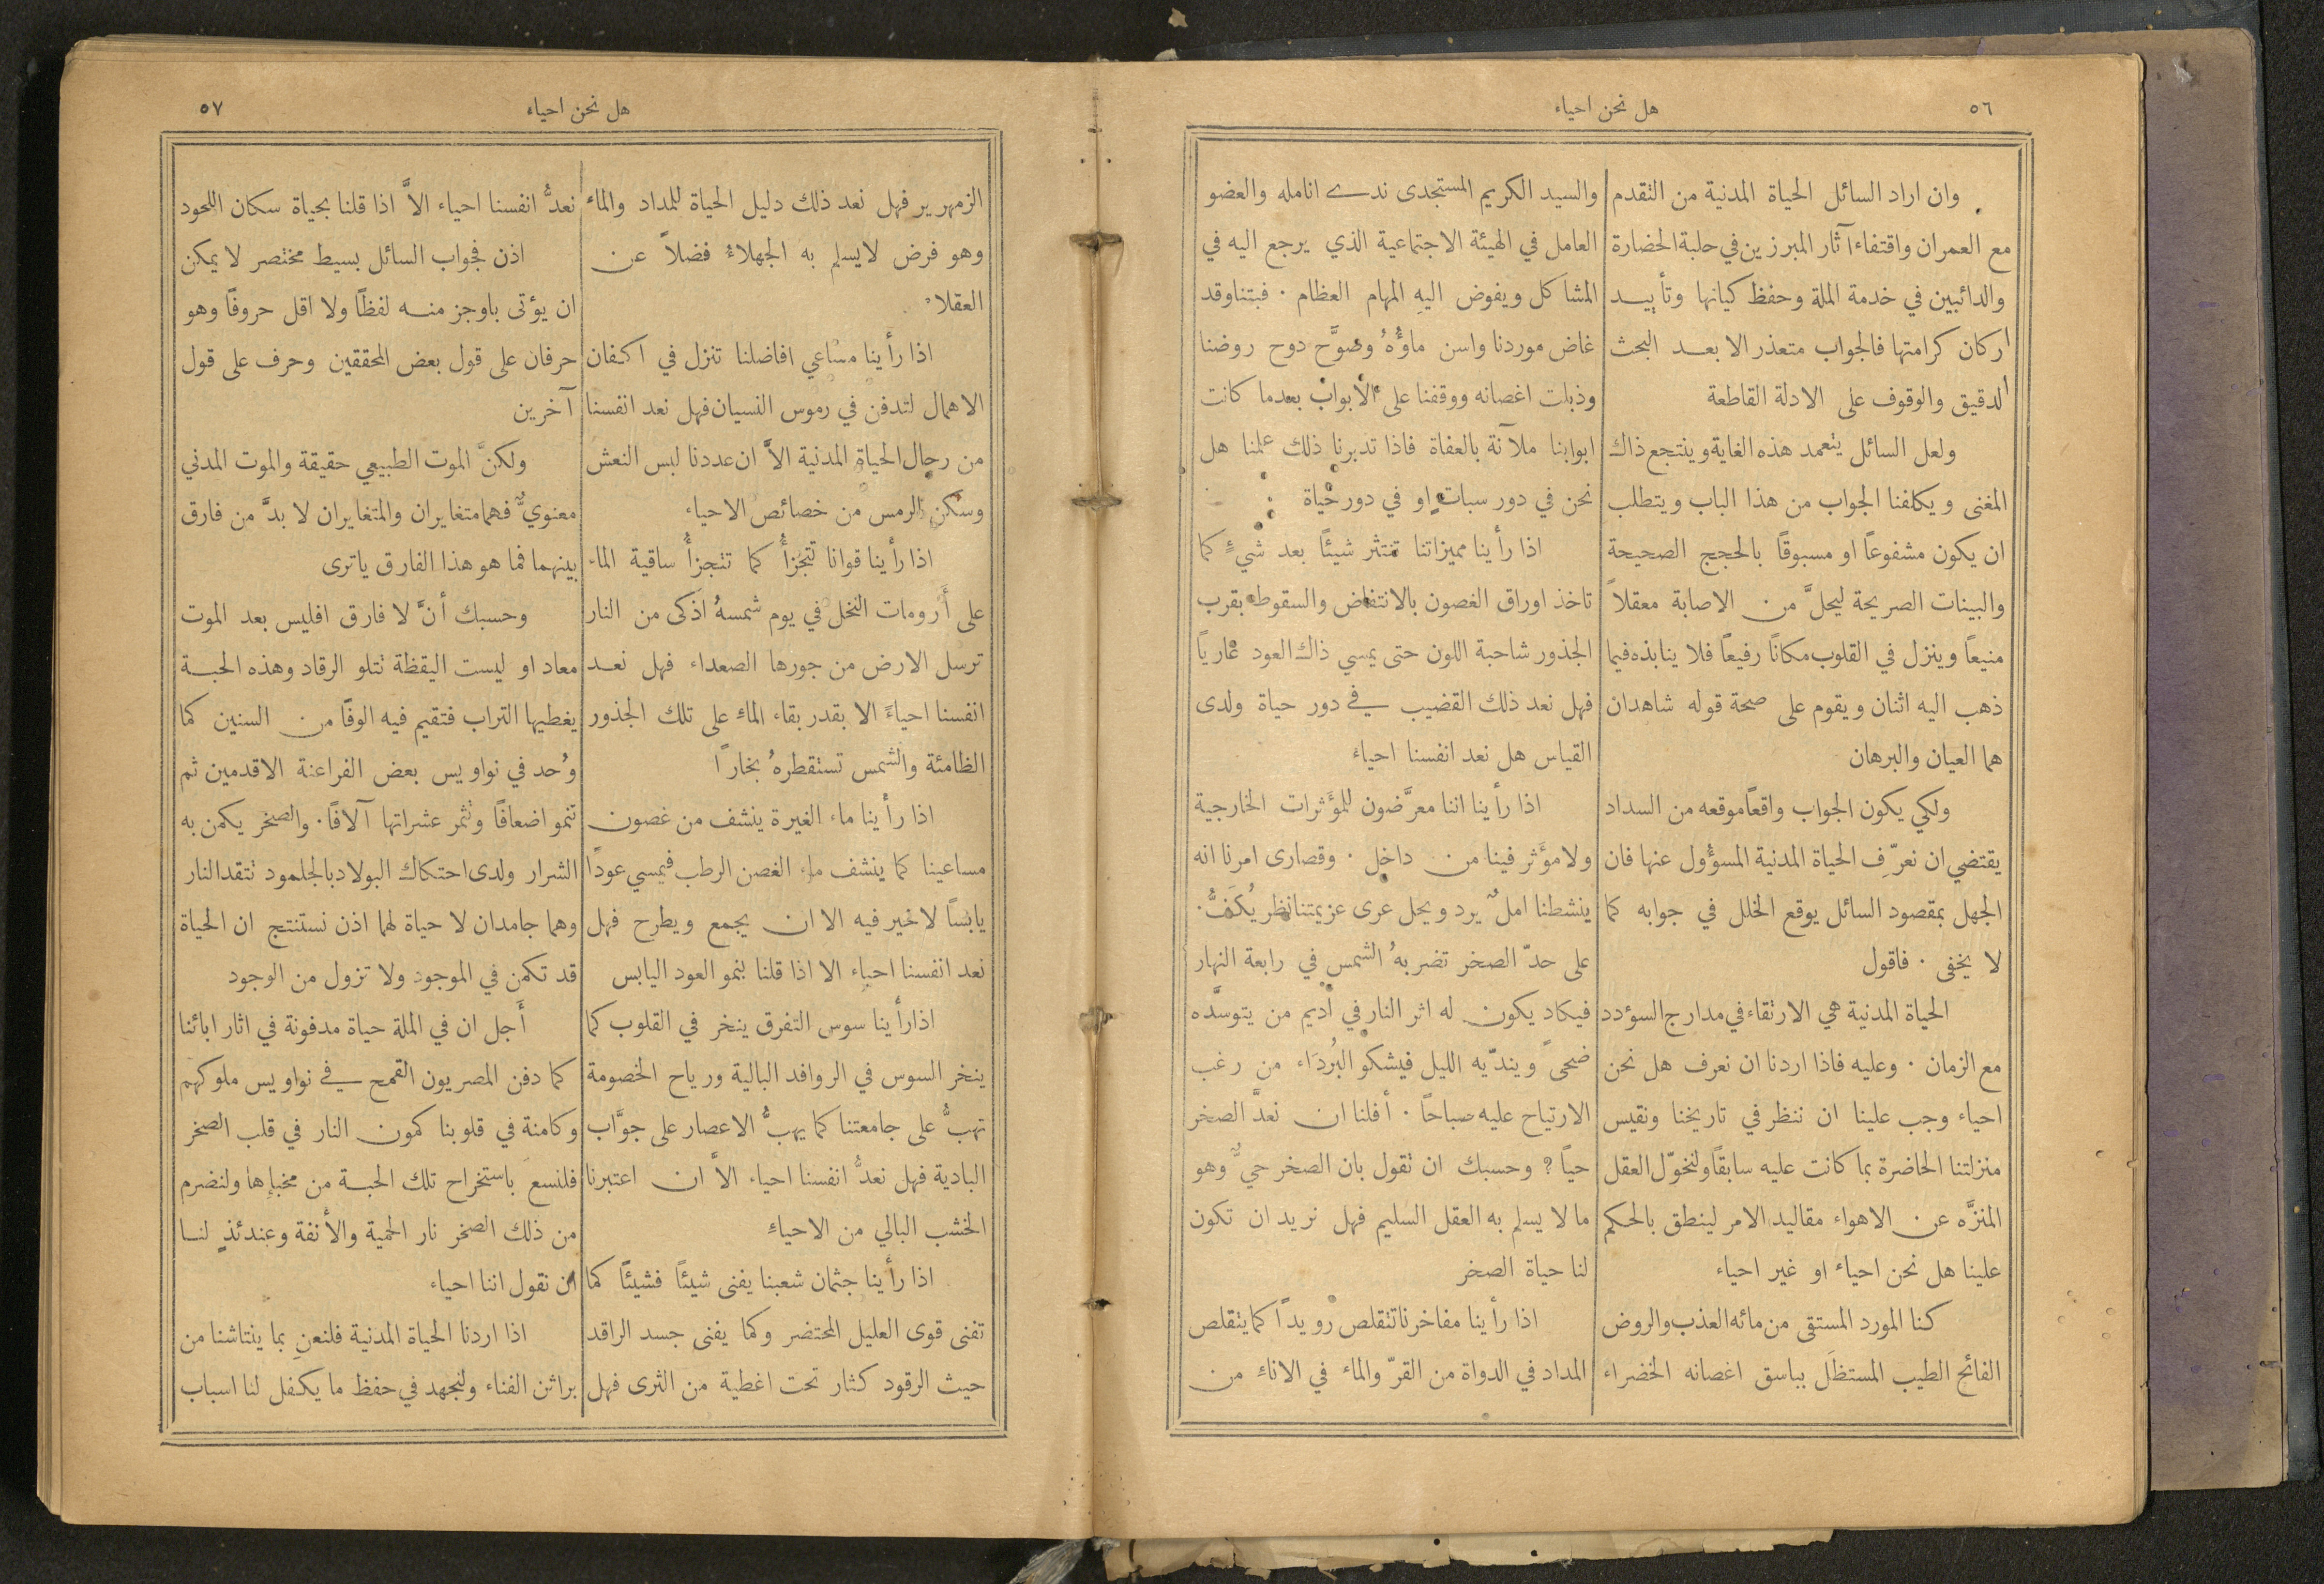 ٥٦
هل نحن احياء
وان اراد السائل الحياة المدنية من التقدم
مع العمران واقتفاء آثار المبرزين في حلبة الحضارة
والدائبين في خدمة الملة وحفظ كيانها وتأييد
اركان كرامتها فالجواب متعذر الا بعد البحث
الدقيق والوقوف على الادلة القاطعة
ولعل السائل يتعمد هذه الغاية وينتجع ذاك
المغنى ويكلفنا الجواب من هذا الباب ويتطلب
ان يكون مشفوعاً او مسبوقاً بالحجج الصحيحة
والبينات الصريحة ليحلَّ من الاصابة معقلاً
منيعاً وينزل في القلوب مكاناً رفيعاً فلا ينابذه فيما
ذهب اليه اثنان ويقوم على صحة قوله شاهدان
هما العيان والبرهان
ولكي يكون الجواب واقعاً موقعه من السداد
يقتضي ان نعرّف الحياة المدنية المسؤُول عنها فان
الجهل بمقصود السائل يوقع الخلل في جوابه كما
لا يخفى . فاقول
الحياة المدنية هي الارتقاء في مدارج السؤدد
مع الزمان . وعليه فاذا اردنا ان نعرف هل نحن
احياء وجب علينا ان ننظر في تاريخنا ونقيس
منزلتنا الحاضرة بما كانت عليه سابقاً ولنخوّل العقل
المنزَّه عن الاهواء مقاليد الامر لينطق بالحكم
علينا هل نحن احياء او غير احياء
كنا المورد المستقى من مائه العذب والروض
الفائح الطيب المستظَل بباسق اغصانه الخضراء
والسيد الكريم المستجدى ندى انامله والعضو
العامل في الهيئة الاجتماعية الذي يرجع اليه في
المشاكل ويفوض اليهِ المهام العظام . فبتنا وقد
غاض موردنا واسن ماؤُهُ وصوَّح دوح روضنا
وذبلت اغصانه ووقفنا على الأبواب بعدما كانت
ابوابنا ملآنة بالعفاة فاذا تدبرنا ذلك علمنا هل
نحن في دور سبات او في دور حياة
اذا رأينا مميزاتنا تنتثر شيئاً بعد شيءٍ كما
تاخذ اوراق الغصون بالانتفاض والسقوط بقرب
الجذور شاحبة اللون حتى يمسي ذاك العود عارياً
فهل نعد ذلك القضيب في دور حياة ولدى
القياس هل نعد انفسنا احياء
اذا رأينا اننا معرَّضون للمؤَثرات الخارجية
ولا مؤَثر فينا من داخل . وقصارى امرنا انه
ينشطنا املٌ يرد ويحل عرى عزيمتنا نظر يُكَفُّ.
على حدّ الصخر تضربهُ الشمس في رابعة النهار
فيكاد يكون له اثر النار في اديم من يتوسَّده
ضحىً ويندّيه الليل فيشكو البُردَاء من رغب
الارتياح عليه صباحاً . أفلنا ان نعدَّ الصخر
حياً ؟ وحسبك ان تقول بان الصخر حيٌّ وهو
ما لا يسلم به العقل السليم فهل نريد ان تكون
لنا حياة الصخر
اذا رأينا مفاخرنا تتقلص رويداً كما يتقلص
المداد في الدواة من القرّ والماء في الاناء من
هل نحن احياء
٥٧
الزمهرير فهل نعد ذلك دليل الحياة للمداد والماء
وهو فرض لا يسلم به الجهلاءُ فضلاً عن
العقلاء
اذا رأينا مساعي افاضلنا تنزل في اكفان
الاهمال لتدفن في رموس النسيان فهل نعد انفسنا
من رجال الحياة المدنية الاَّ ان عددنا لبس النعش
وسكن الرمس من خصائص الاحياء
اذا رأينا قوانا تتجُزأُ كما تتجزأُ ساقية الماء
على أَرومات النخل في يوم شمسهُ اذكى من النار
ترسل الارض من جورها الصعداء فهل نعد
انفسنا احياءً الا بقدر بقاء الماء على تلك الجذور
الظامئة والشمس تستقطرهُ بخاراً
اذا رأينا ماء الغيرة ينشف من غصون
مساعينا كما ينشف ماء الغصن الرطب فيمسي عوداً
يابساً لا خير فيه الا ان يجمع ويطرح فهل
نعد انفسنا احياء الا اذا قلنا بنمو العود اليابس
اذا رأينا سوس التفرق ينخر في القلوب كما
ينخر السوس في الروافد البالية ورياح الخصومة
تهبُّ على جامعتنا كما يهبُّ الاعصار على جوَّاب
البادية فهل نعدُّ انفسنا احياء الاَّ ان اعتبرنا
الخشب البالي من الاحياء
اذا رأينا جثمان شعبنا يفنى شيئاً فشيئاً كما
تفنى قوى العليل المحتضر وكما يفنى جسد الراقد
حيث الرقود كثار تحت اغطية من الثرى فهل
نعدُّ انفسنا احياء الاَّ اذا قلنا بحياة سكان اللحود
اذن فجواب السائل بسيط مختصر لا يمكن
ان يؤتى باوجز منه لفظاً ولا اقل حروفاً وهو
حرفان على قول بعض المحققين وحرف على قول
آخرين
ولكنَّ الموت الطبيعي حقيقة والموت المدني
معنويٌّ فهما متغايران والمتغايران لا بدَّ من فارق
بينهما فما هو هذا الفارق ياترى
وحسبك أنَّ لا فارق افليس بعد الموت
معاد او ليست اليقظة تتلو الرقاد وهذه الحبة
يغطيها التراب فتقيم فيه الوفًا من السنين كما
وُحد في نواويس بعض الفراعنة الاقدمين ثم
تنمو اضعافاً وتثمر عشراتها آلافاً. والصخر يكمن به
الشرار ولدى احتكاك البولاد بالجلمود تتقد النار
وهما جامدان لا حياة لهما اذن نستنتج ان الحياة
قد تكمن في الموجود ولا تزول من الوجود
أَجل ان في الملة حياة مدفونة في اثار ابائنا
كما دفن المصريون القمح في نواويس ملوكهم
وكامنة في قلوبنا كمون النار في قلب الصخر
فلنسعَ باستخراج تلك الحبة من مخبإها ولنضرم
من ذلك الصخر نار الحمية والأنفة وعندئذٍ لنا
ان نقول اننا احياء
اذا اردنا الحياة المدنية فلنعنِ بما ينتاشنا من
براثن الفناء ولنجهد في حفظ ما يكفل لنا اسباب